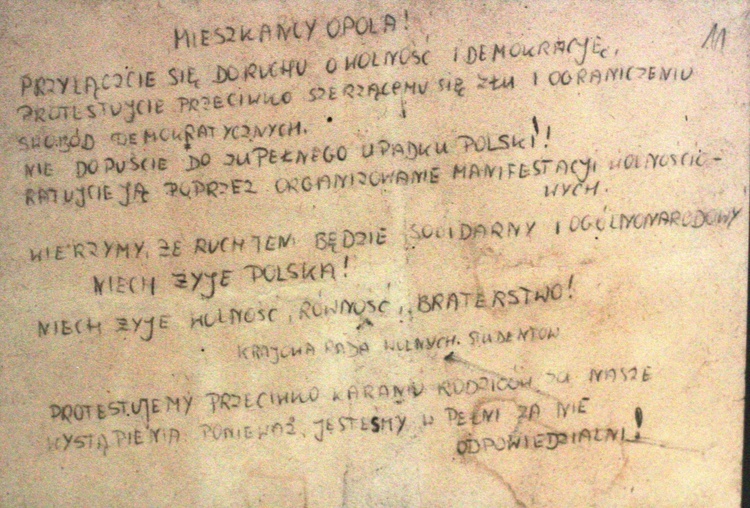 MIESZKAŃCY OPOLA!
11
PRZYŁĄCZCIE SIĘ DO RUCHU O WOLNOŚĆ I DEMOKRACJĘ,
PROTESTUJCIE PRZECIWKO SZERZĄCEMU SIĘ ZŁU I OGRANICZENIU
SWOBÓD DEMOKRATYCZNYCH.
NIE DOPUŚCIE DO ZUPEŁNEGO UPADKU POLSKI!
RATUJCIE JĄ POPRZEZ ORGANIZOWANIE MANIFESTACJI WOLNOŚCIO-
WYCH.
WIERZYMY, ŻE RUCH TEN BĘDZIE SOLIDARNY I OGÓLNONARODOWY
NIECH ŻYJE POLSKA!
NIECH ŻYJE WOLNOŚĆ, RÓWNOŚĆ, BRATERSTWO!
KRAJOWA RADA WOLNYCH STUDENTÓW
PROTESTUJEMY PRZECIWKO KARANIU RODZICÓW ZA NASZE
WYSTĄPIENIA PONIEWAŻ, JESTEŚMY W PEŁNI ZA NIE
ODPOWIEDZIALNI!